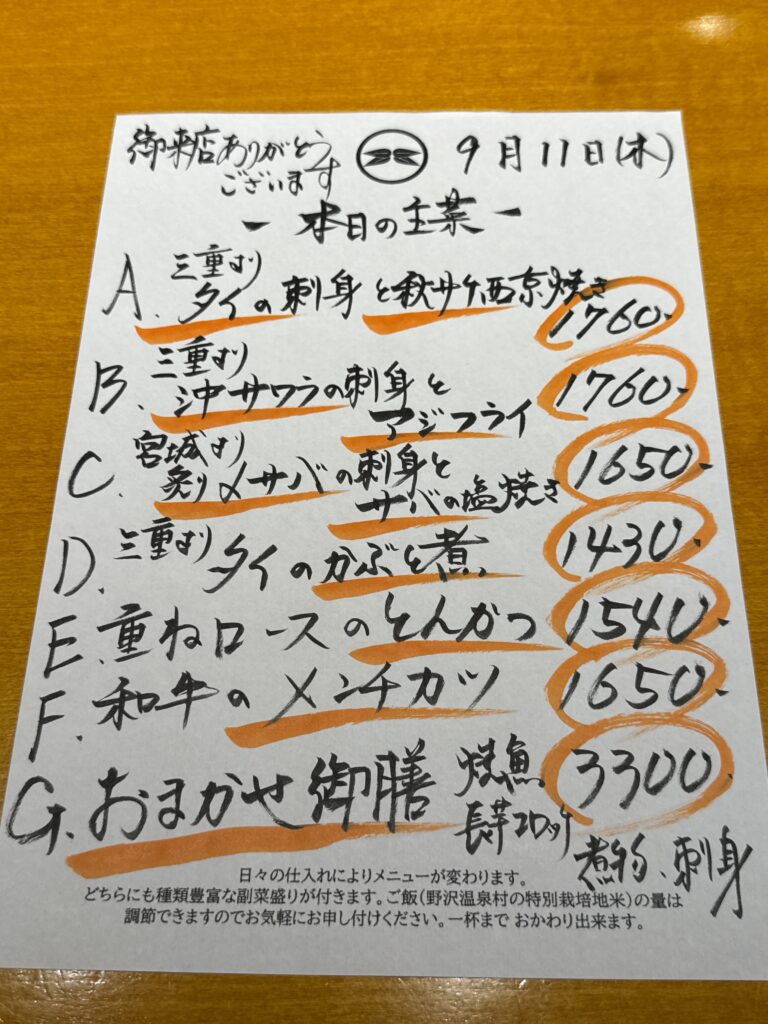 御来店ありがとう
ございます
9月11日(木)
- 本日の主菜 -
A. 三重より
タイの刺身と秋サケ西京焼き
1760-
B. 三重より
沖サワラの刺身と
アジフライ
1760-
C. 宮城より
炙り〆サバの刺身と
サバの塩焼き
1650-
D. 三重より タイのかぶと煮 1430-
E. 重ねロースのとんかつ 1540-
F. 和牛のメンチカツ 1650-
G. おまかせ御膳 焼魚 3300-
長芋コロッケ
煮物、刺身
日々の仕入れによりメニューが変わります。
どちらにも種類豊富な副菜盛りが付きます。ご飯(野沢温泉村の特別栽培地米)の量は
調節できますのでお気軽にお申し付けください。一杯まで おかわり出来ます。